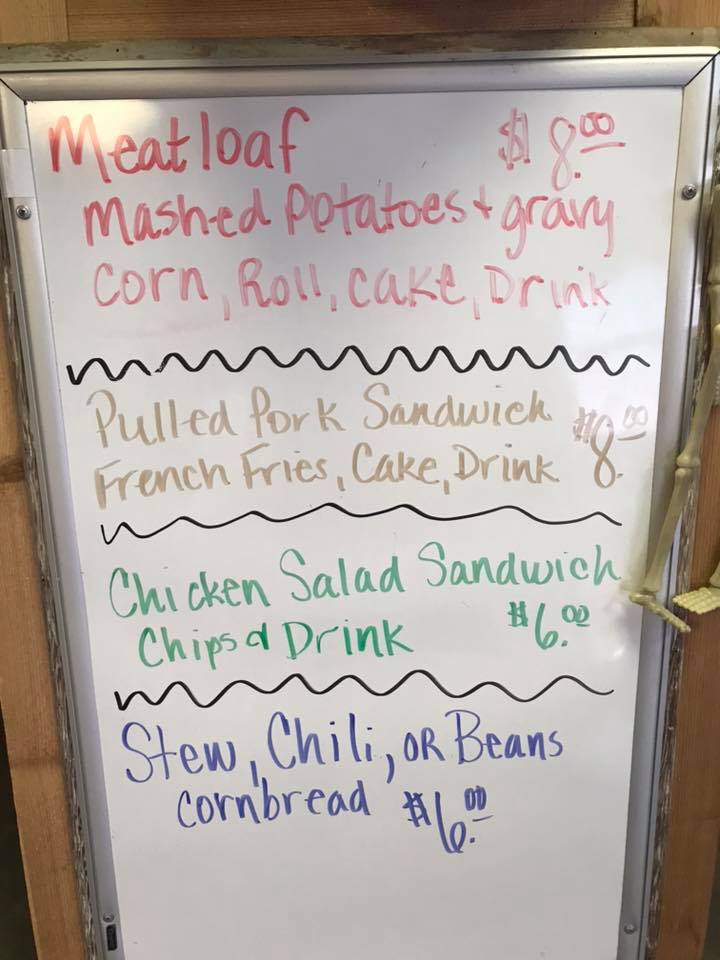 Meatloaf $8.00
Mashed Potatoes + gravy
Corn, Roll, cake, Drink
Pulled Pork Sandwich $8.00
French Fries, Cake, Drink
Chicken Salad Sandwich
Chips & Drink $6.00
Stew, Chili, OR Beans
Cornbread $6.00